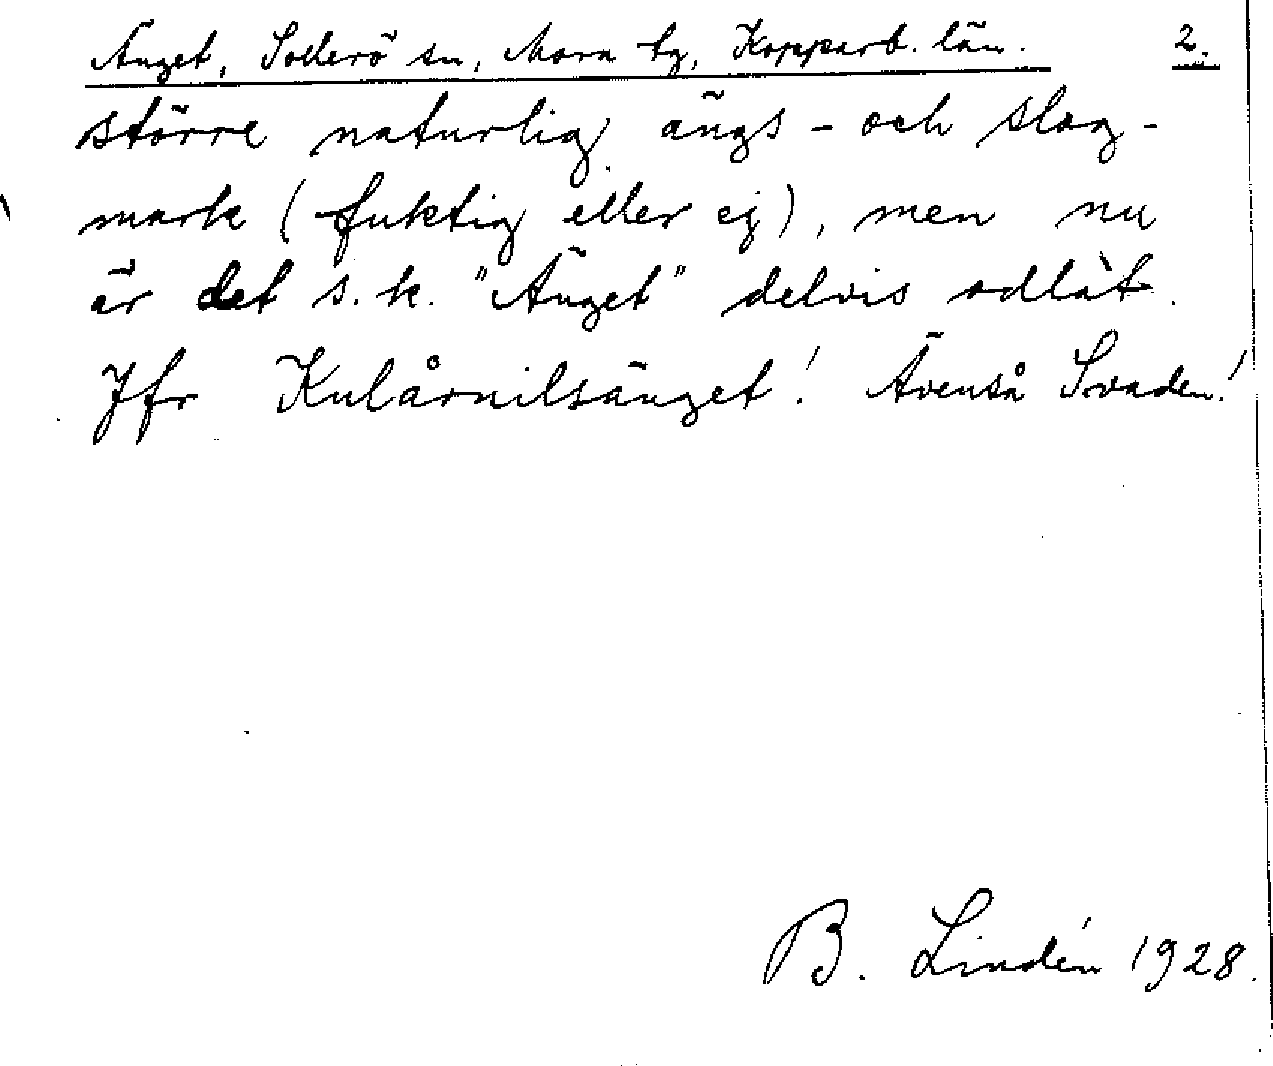 Änget, Sollerö sn, Mora tg, Kopparb. län. 2.
större naturlig ängs- och slog-
mark (fuktig eller ej), men nu
är det s.k. "Änget" delvis odlat.
Jfr Kulårnilsänget! Ävenså Svaden!
B. Lindén 1928.